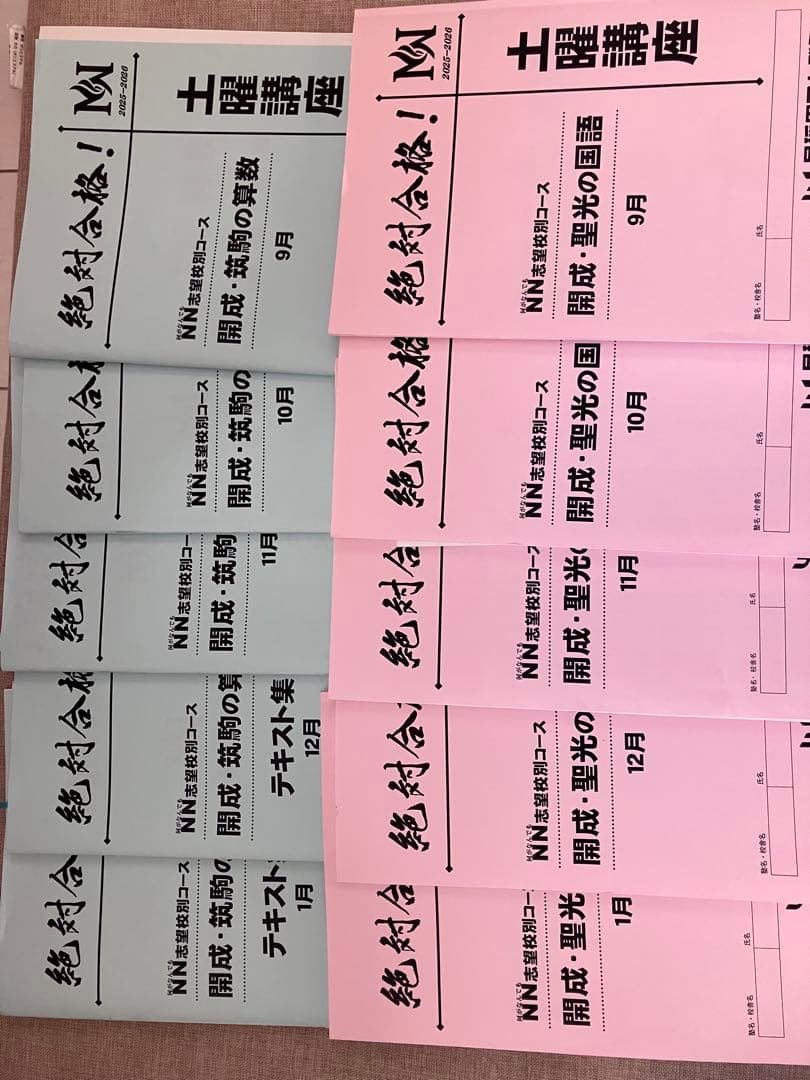 NN
2025−2026
土曜講座
絶対合格！
何がなんでも
NN志望校別コース
開成・筑駒の算数
9月
絶対合格
何がなんでも
NN志望校別コース
開成・筑駒の
10月
絶対合
何がなんでも
NN志望校別コー
開成・筑駒
11月
絶対合格
何がなんでも
NN志望校別コース
開成・筑駒の算
テキスト集
12月
絶対合
何がなんでも
NN志望校別コース
開成・筑駒の
テキスト
1月
NN
2025−2026
土曜講座
絶対合格！
何がなんでも
NN志望校別コース
開成・聖光の国語
9月
氏名
塾名・校舎名
絶対合格！
何がなんでも
NN志望校別コース
開成・聖光の国
10月
氏名
塾名・校舎名
絶対合
何がなんでも
NN志望校別コー
開成・聖光
11月
氏名
塾名・校舎名
絶対合
何がなんでも
NN志望校別コース
開成・聖光の
12月
氏名
塾名・校舎名
絶対合
何がなんでも
NN志望校別コー
開成・聖光
1月
氏名
塾名・校舎名